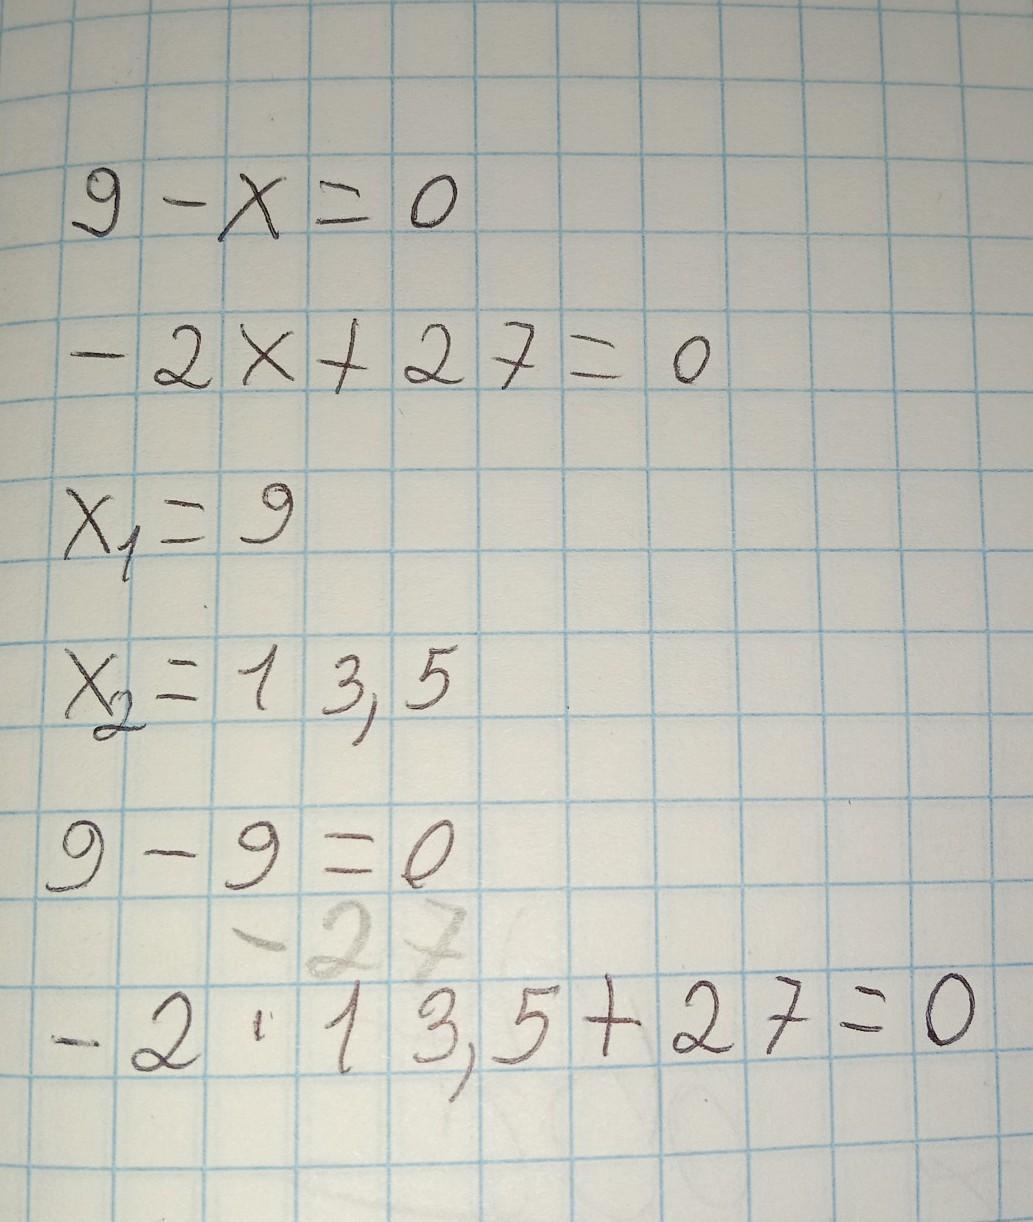 9 - x = 0
- 2x + 27 = 0
x₁ = 9
x₂ = 13,5
9 - 9 = 0
- 27
- 2 · 13,5 + 27 = 0